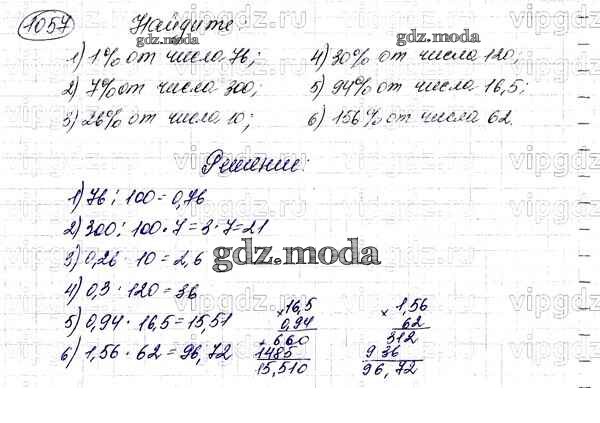 1057 Найдите:
1) 1% от числа 76;
2) 7% от числа 300;
3) 26% от числа 10;
4) 30% от числа 120;
5) 94% от числа 16,5;
6) 156% от числа 62.
Решение:
1) 76 : 100 = 0,76
2) 300 : 100 · 7 = 3 · 7 = 21
3) 0,26 · 10 = 2,6
4) 0,3 · 120 = 36
5) 0,94 · 16,5 = 15,51
6) 1,56 · 62 = 96,72
× 16,5
0,94
+ 660
1485
15,510
× 1,56
62
312
936
96,72
gdz.moda
gdz.moda
gdz.moda
vipgdz.ru